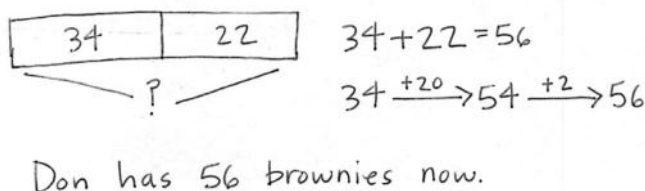 34 22 34+22=56
?
34 +20→ 54 +2→ 56
Don has 56 brownies now.